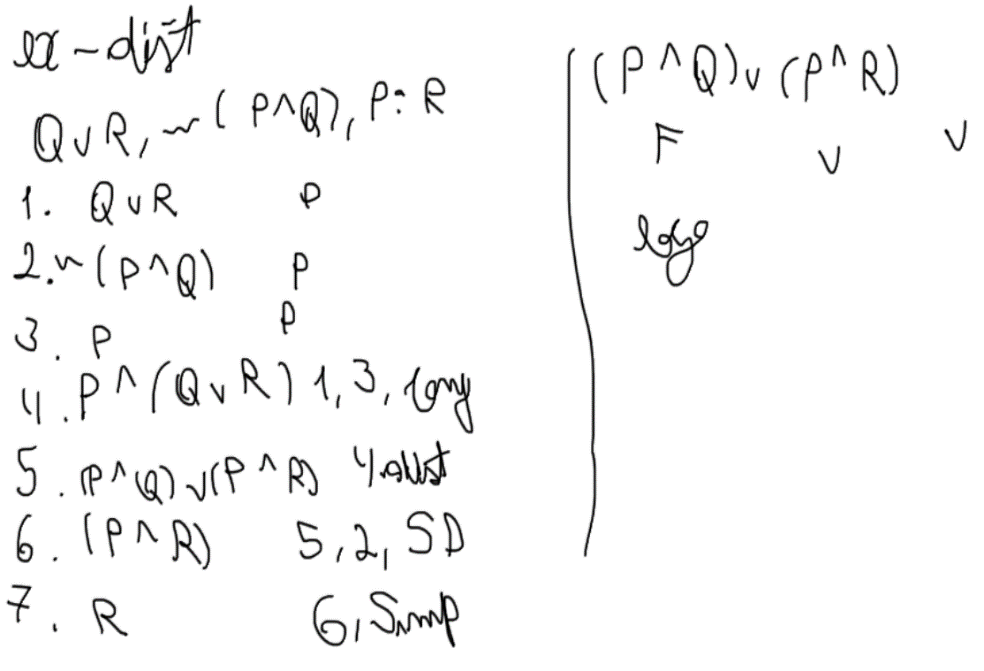 ex - dist
Q ∨ R, ~ ( P ∧ Q), P ∴ R
1. Q ∨ R P
2. ~ ( P ∧ Q) P
3. P P
4. P ∧ (Q ∨ R) 1, 3, Conj
5. (P ∧ Q) ∨ (P ∧ R) 4, dist
6. (P ∧ R) 5, 2, SD
7. R 6, Simp
(P ∧ Q) ∨ (P ∧ R)
F V V
logo